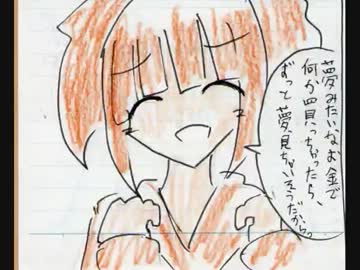 夢みたいなお金で
何か買っちゃったら、
ずっと夢見ちゃいそうだから。